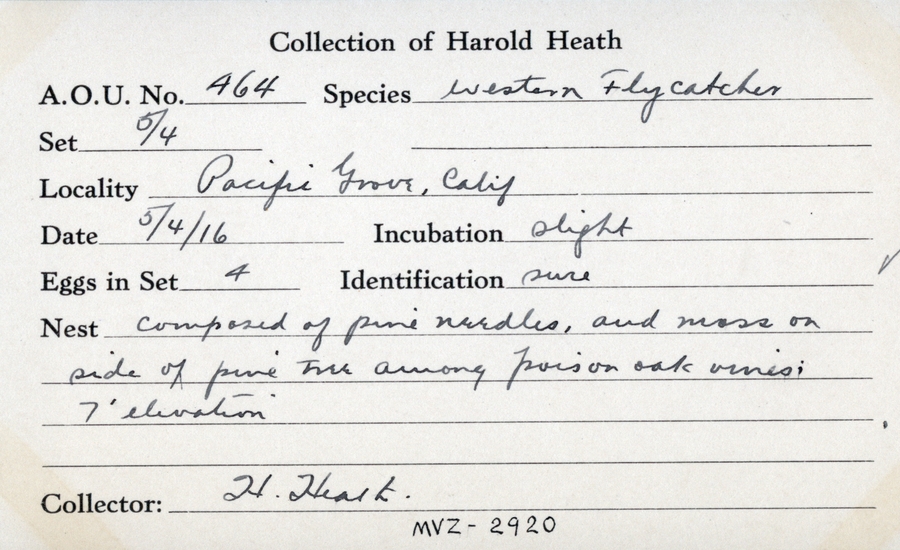 Collection of Harold Heath
A.O.U. No. 464 Species western Flycatcher
Set 5/4
Locality Pacific Grove, Calif
Date 5/4/16 Incubation slight
Eggs in Set 4 Identification sure
Nest composed of pine needles, and moss on
side of pine tree among poison oak vines;
7' elevation
Collector: H. Heath.
MVZ - 2920